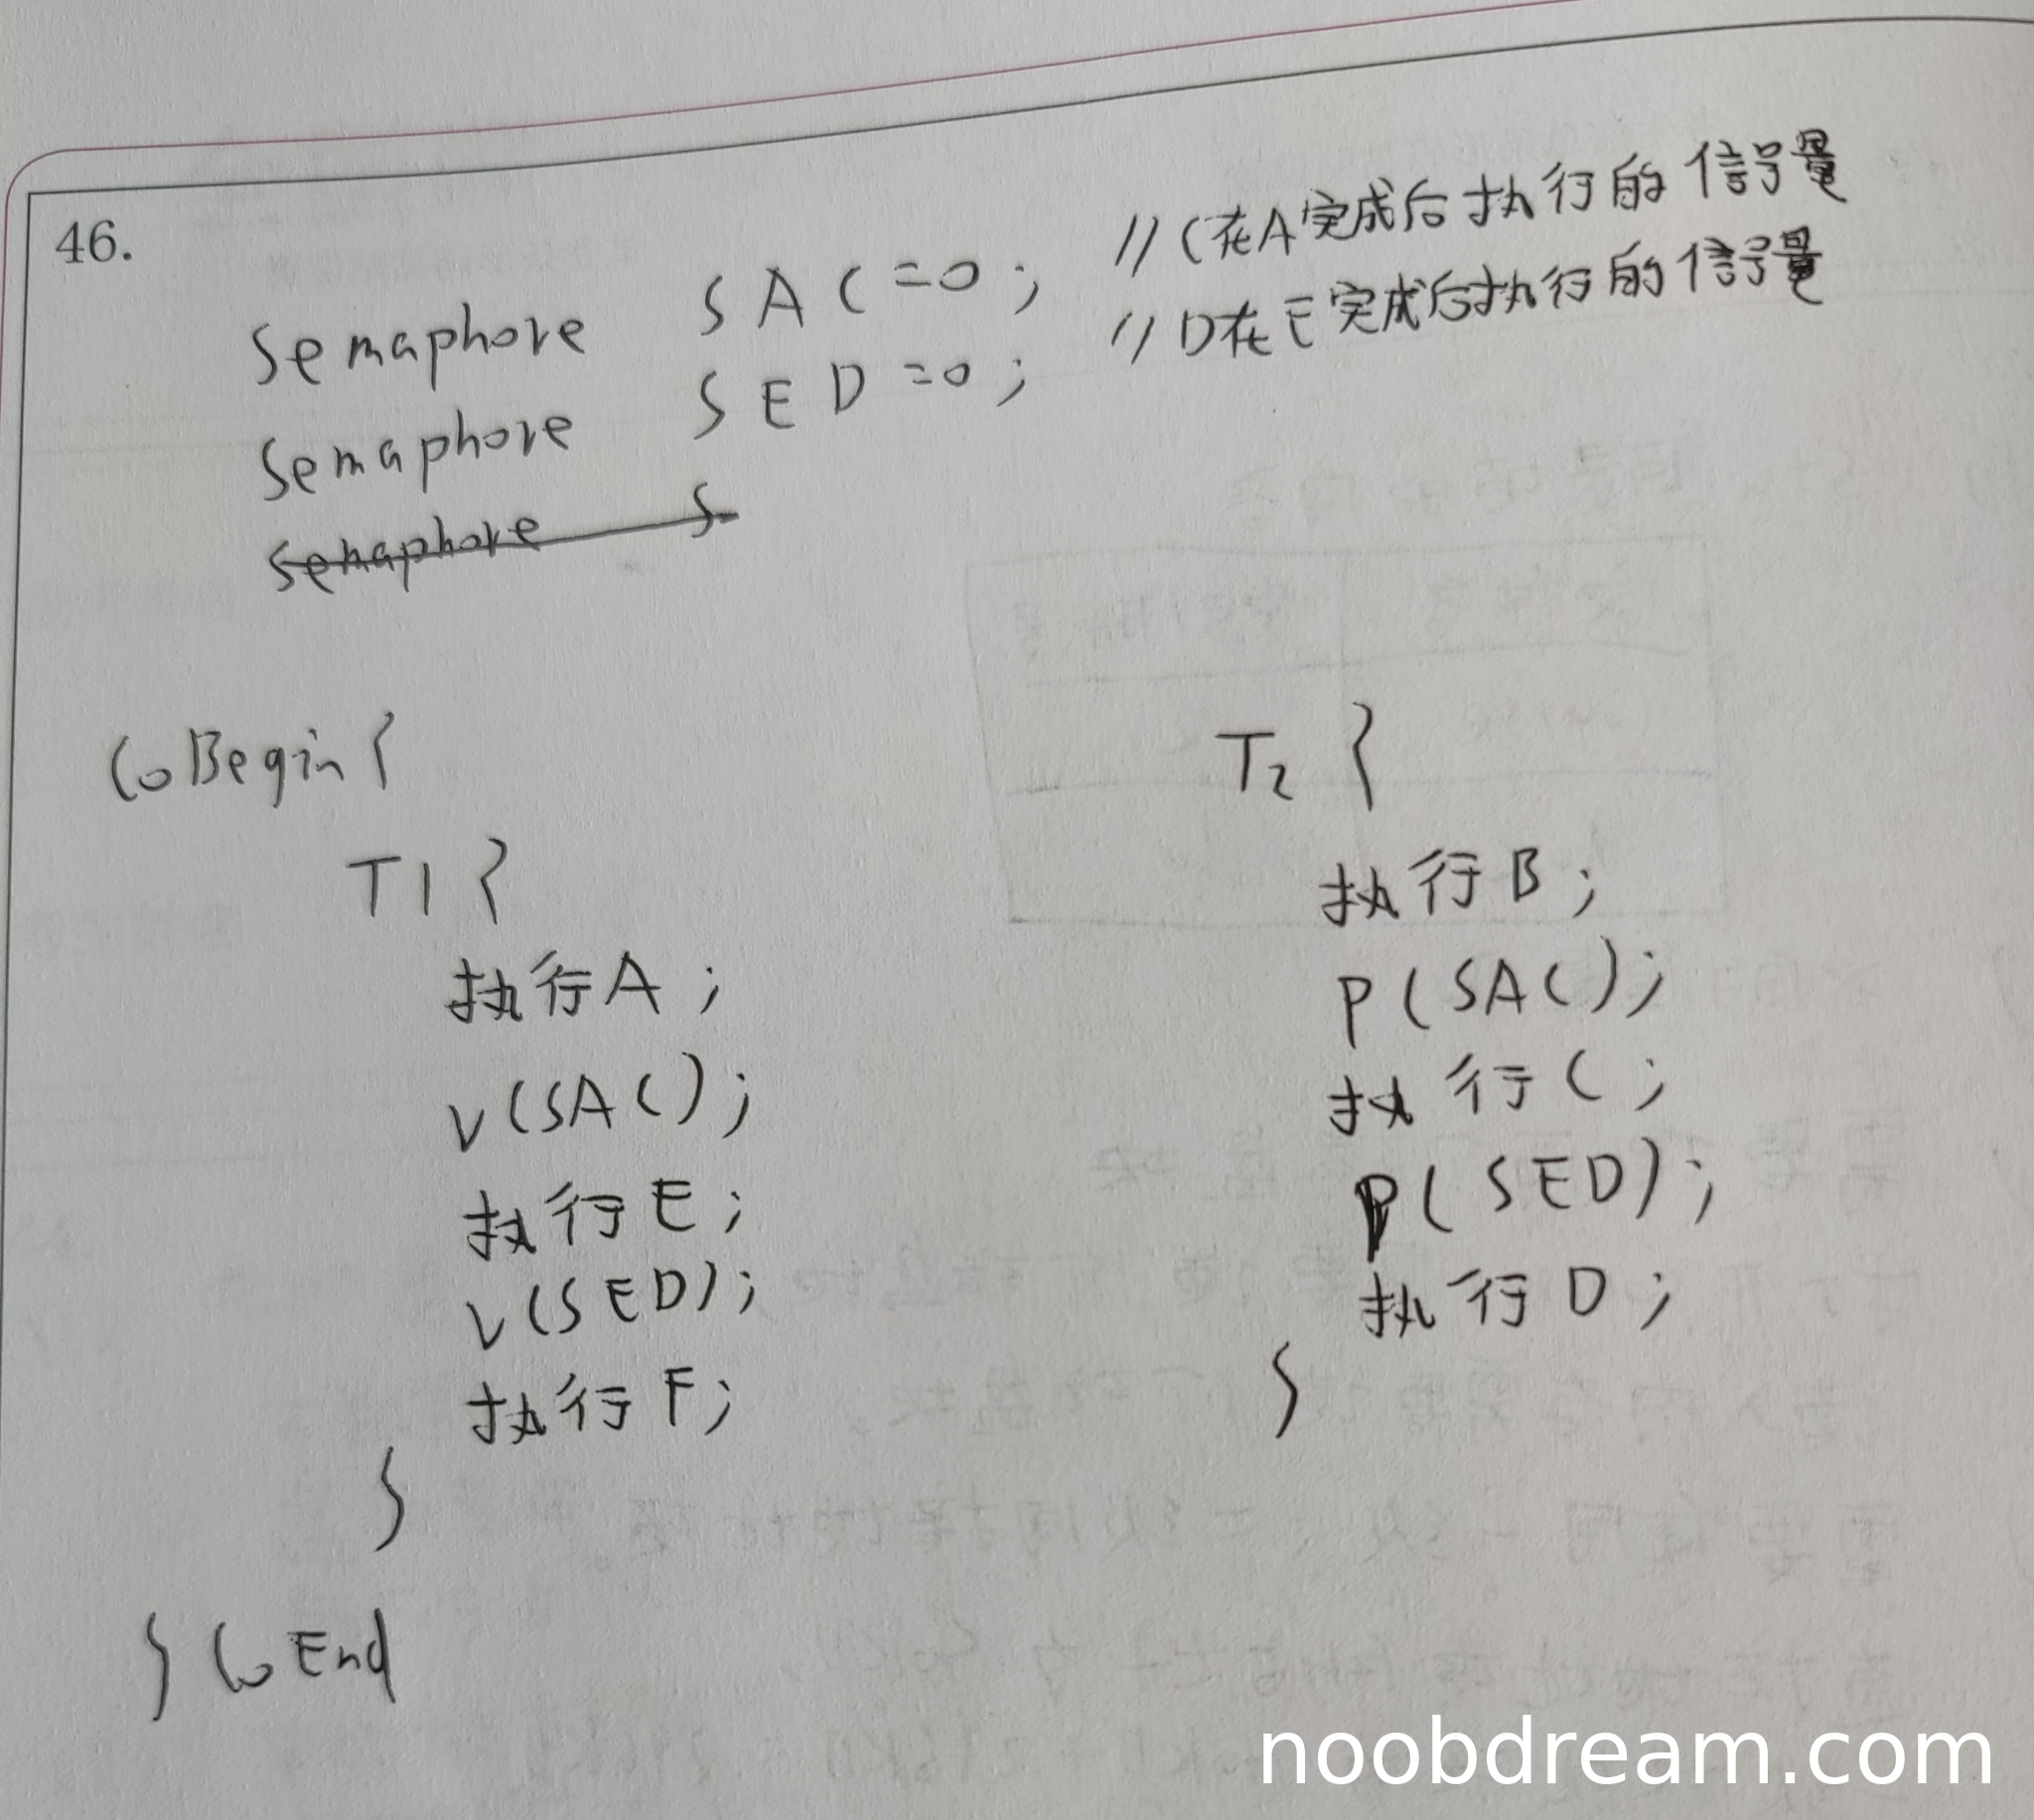 46.
Semaphore SAC=0; //C在A完成后执行的信号量
Semaphore SED=0; //D在E完成后执行的信号量
Semaphore S
CoBegin{
T1{
执行A;
V(SAC);
执行E;
V(SED);
执行F;
}
T2{
执行B;
P(SAC);
执行C;
P(SED);
执行D;
}
}CoEnd
noobdream.com